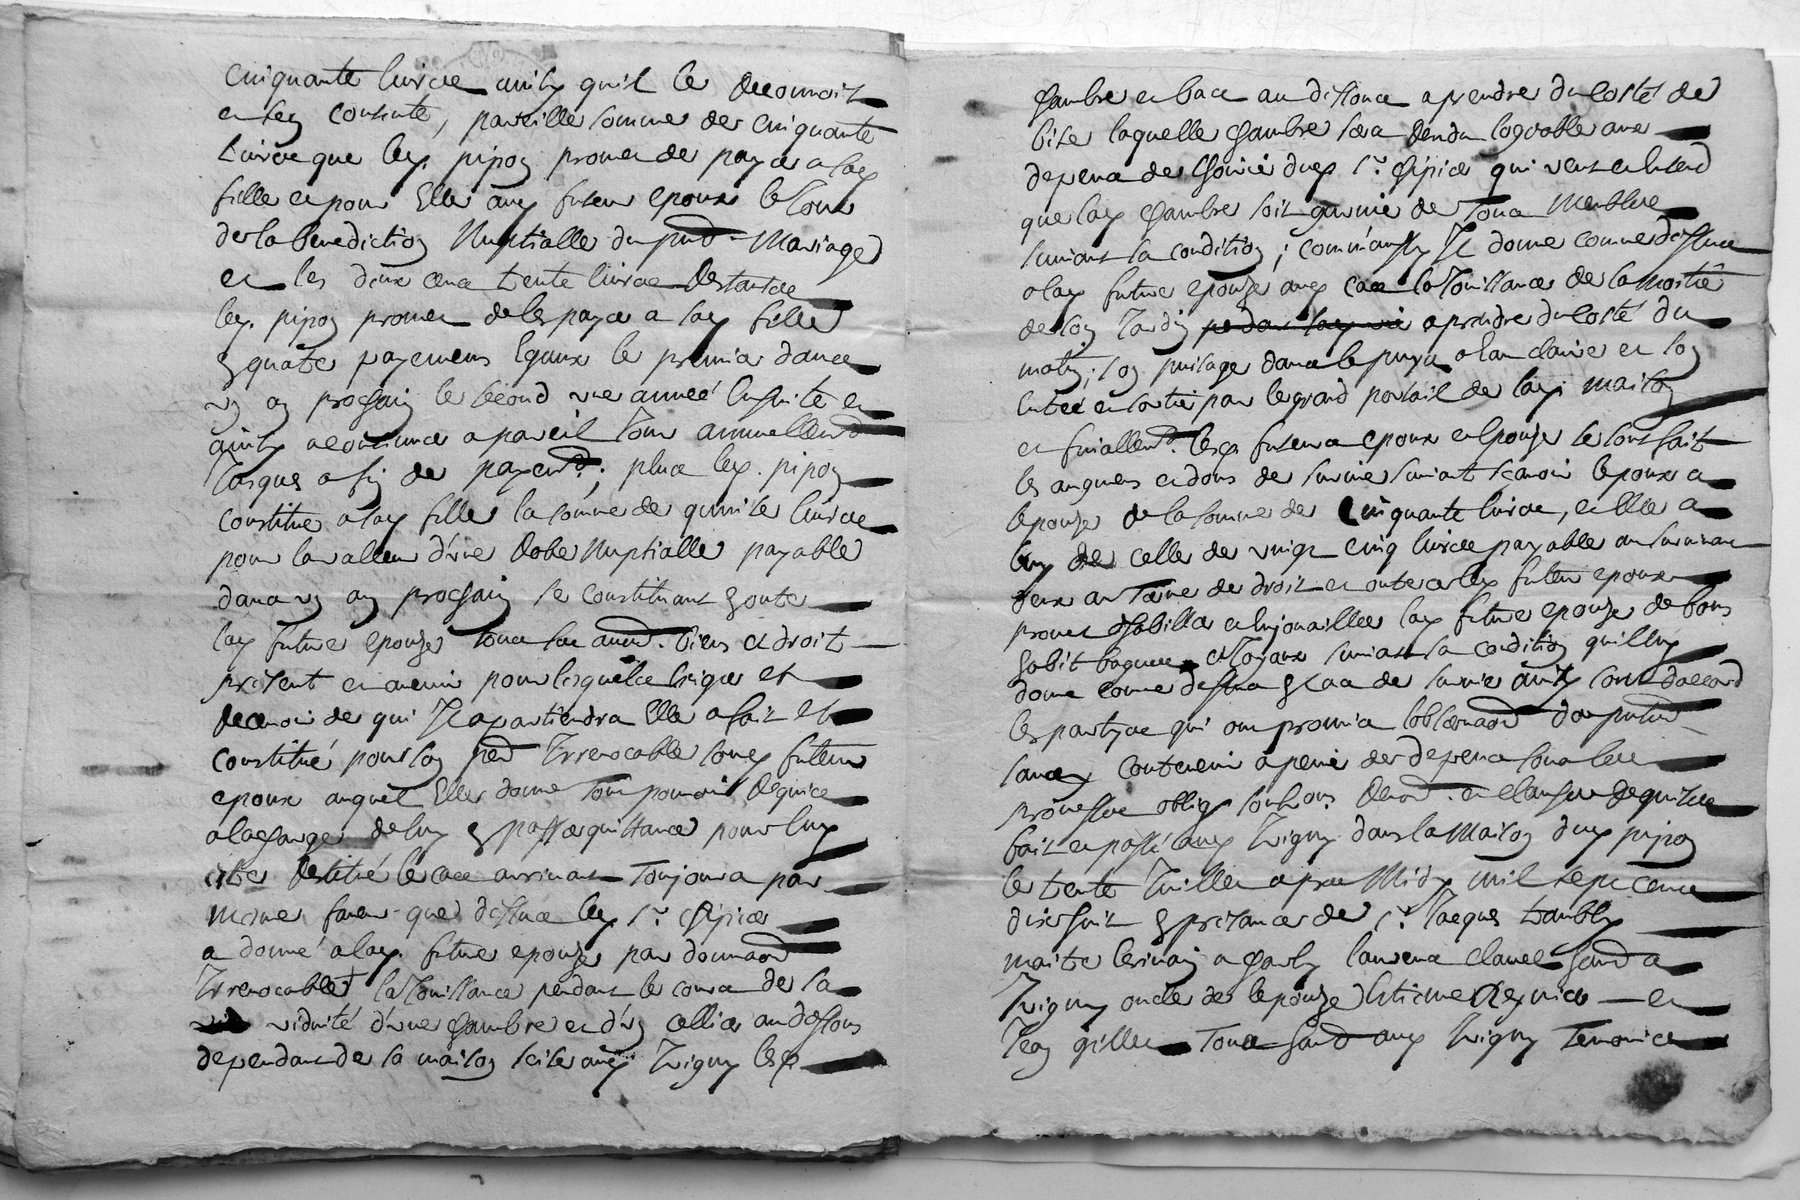 cinquante livres ainsy quil le reconnoit
et sen contente, pareille somme de cinquante
livres que led. pipon promet de payer a lad
fille et pour Elle aud futeur epoux le jour
de la benediction Nuptialle du pnt Mariage
et les deux cens trente livres restantes
led. pipon promet de les payer a sad fille
en quatre payemens Egaux le premier dans
un an prochain le second une année Ensuite et
ainsy acontinuer a pareil jour annuellemt
Jusques a fin de payemt; plus led. pipon
constitue a lad fille la somme de quinze livres
pour la valleur d'une Robe Nuptialle payable
dans un an prochain se constituant en outre
lad future epouze tous ses autres biens et droit
present et avenir pour lesquels exiger et
recevoir de qui Il apartiendra Elle a fait et
constitué pour son pr Irrevocable lond futeur
epoux auquel Elle donne tout pouvoir requis
a la charge de luy en passer quittance pour luy
etre restitué le cas arrivant Toujours par
meme faveur que dessus led. sr
a donné a lad. future epouze par donnaon
Irrevocable la Jouissance pendant le cours de sa
viduité d'une chambre et d'un cellier au dessous
dependant de sa maison scize aud Irigny lesd
chambre et bas au dessous a prendre du costé de
bize laquelle chambre sera rendu logeable aux
depens des hoirs dud sr qui veut et entend
que lad chambre soit garnie de tous Meubles
suivant sa condition; comm'aussy Il donne comme dessus
a lad future epouze aud cas la Jouissance de la moitié
de son Jardin pendant sad vie a prendre du costé du
matin; son puisage dans le puys a eau claire et son
entrée et sortie par le grand portail de lad. maison
et finallemt. lesd futeurs epoux et epouze se sont fait
les augmens et dons de survie suivant scavoir lepoux a
lepouze de la somme de Cinquante livres, et Elle a
luy de celle de vingt cinq livres payable au survivant
deux au terme de droit et outre ce led futeur epoux
promet dhabiller et enjouailler lad future epouze de bons
habit bagues et Joyaux suivant sa condition quil luy
donne comme dessus en cas de survie ainsy sont d'accord
les partyes qui ont promis lobservaon du present
contenu a peine de depens sous les
promesses oblig soubmis Renon. et clauses requises
fait et passé aud Irigny dans la Maison dud pipon
le trente Juillet apres Midy mil sept cens
dix huit en presence de sr Jacques trambly
maitre ecrivain a charly laurens clavel habt a
Irigny oncle de lepouze Estienne Reynier et
Jean gillet tous habt aud Irigny Temoins